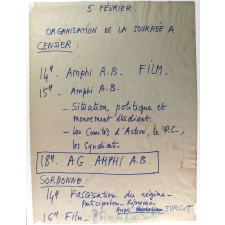 5 FÉVRIER.
ORGANISATION DE LA JOURNÉE A
CENSIER :
14H Amphi A.B. FILM.
15H Amphi A.B.
- Situation politique et
mouvement étudiant.
- Les Comités d'Action, le P.C.,
les Syndicats.
18H. AG AMPHI A.B.
SORBONNE :
14H Fascisation du régime -
Participation - Répression
Amphi TURGOT
16H Film -